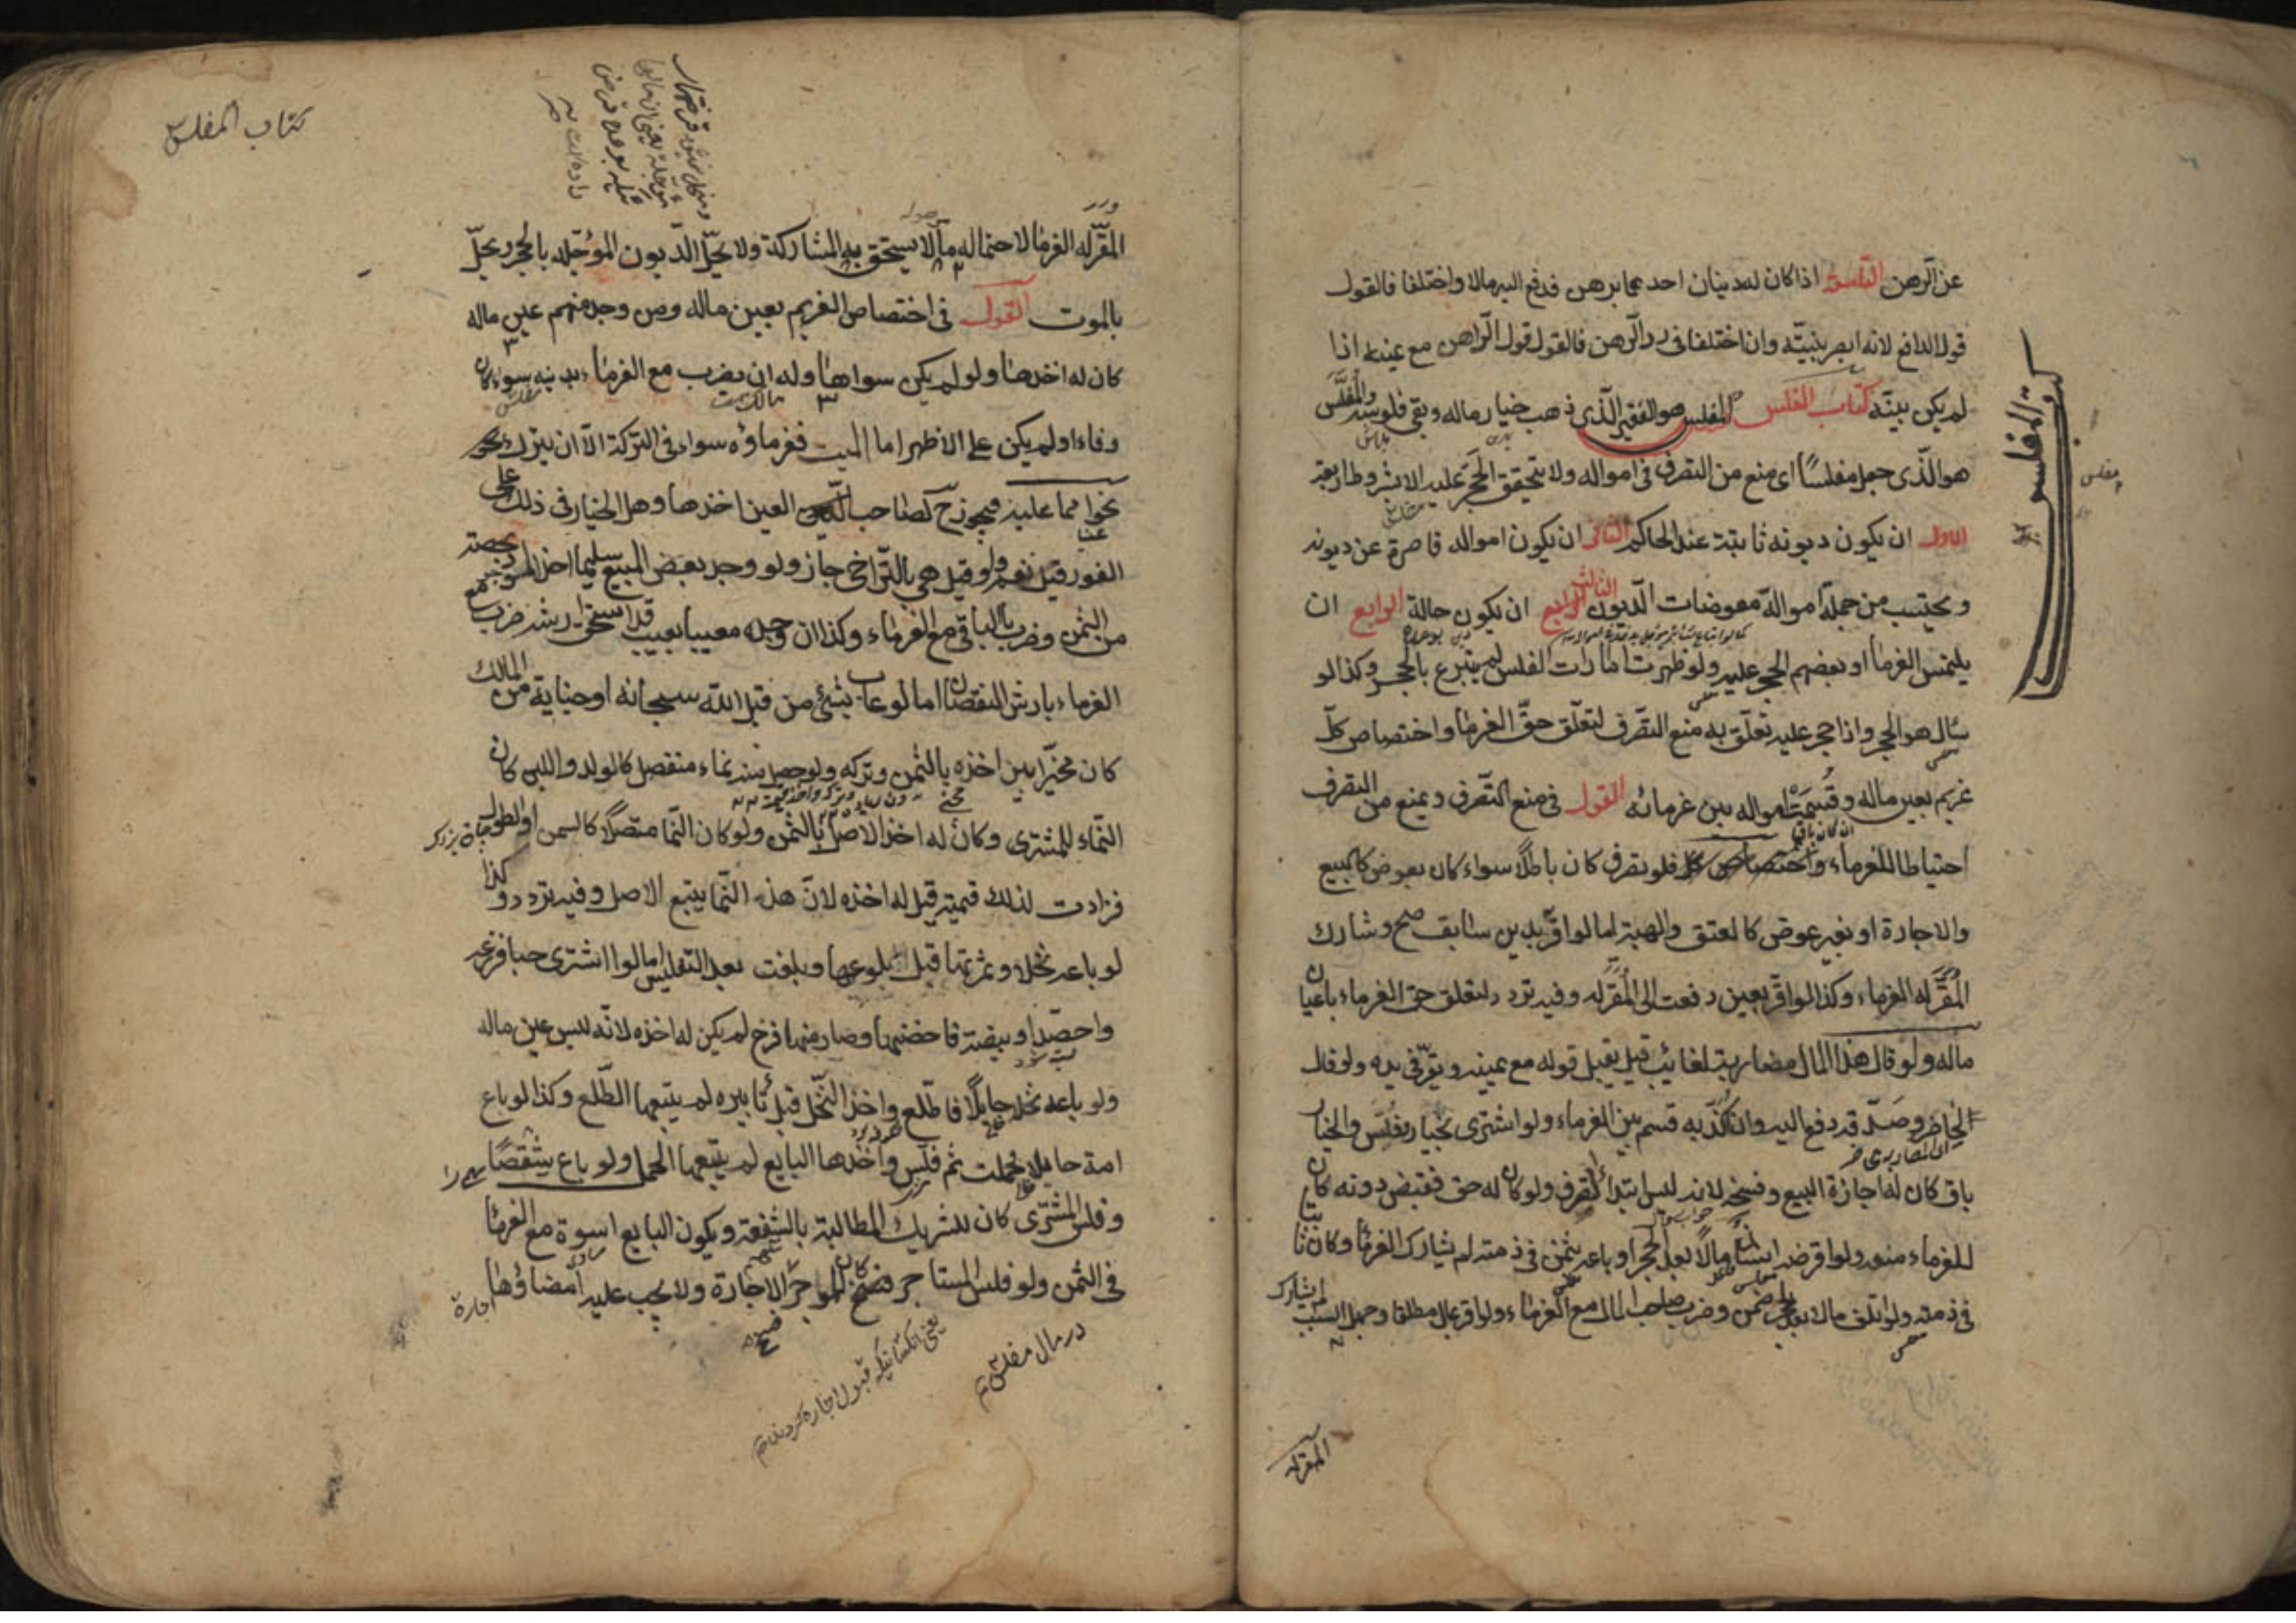 عن الرهن التاسعة اذا كان له دينان احدهما برهن فدفع اليه مالا واختلفا فالقول
قول الدافع لانه ابصر بنيته وان اختلفا فى رد الرهن فالقول قول الراهن مع يمينه اذا
لم يكن بينة كتاب المفلس المفلس هو الفقير الذى ذهب خيار ماله وبقى فلوسه والمفلس
هو الذى جعل مفلسا اى منع من التصرف فى امواله ولا يتحقق الحجر عليه الا بشروط اربعة
الاول ان يكون ديونه ثابتة عند الحاكم الثانى ان يكون امواله قاصرة عن ديونه
ويحتسب من جملة امواله معوضات الديون الثالث ان يكون حالة الرابع ان
يلتمس الغرماء او بعضهم الحجر عليه ولو ظهرت امارات الفلس لم يتبرع بالحجر وكذا لو
سال هو الحجر واذا حجر عليه تعلق به منع التصرف لتعلق حق الغرماء واختصاص كل
غريم بعين ماله وقسمة امواله بين غرمائه القول فى منع التصرف ويمنع من التصرف
احتياطا للغرماء فلو تصرف كان باطلا سواء كان بعوض كالبيع
والاجارة او بغير عوض كالعتق والهبة اما لو اقر بدين سابق صح وشارك
المقر له الغرماء وكذا لو اقر بعين دفعت الى المقر له وفيه تردد لتعلق حق الغرماء باعيان
ماله ولو قال هذا المال مضاربة لغائب قيل يقبل قوله مع يمينه ويقر فى يده ولو قال
لحاضر وصدقه دفع اليه وان كذبه قسم بين الغرماء ولو اشترى بخيار وفلس والخيار
باق كان له اجازة البيع وفسخه لانه ليس ابتداء تصرف ولو كان له حق فقبض دونه كان
للغرماء منعه ولو اقرضه انسان مالا بعد الحجر او باعه بثمن فى ذمته لم يشارك الغرماء وكان ثابتا
فى ذمته ولو اتلف مالا بعد الحجر ضمن وضرب صاحب المال مع الغرماء ولو اقر بمال مطلقا وجهل السبب لم يشارك
المقر له
كتاب المفلس
مفلس
كتاب المفلس
المقر له الغرماء لاحتماله ما لا يستحق به المشاركة ولا يحل الديون المؤجلة بالحجر ويحل
بالموت القول فى اختصاص الغريم بعين ماله ومن وجد منهم عين ماله
كان له اخذها ولو لم يكن سواها وله ان يضرب مع الغرماء بدينه سواء كان
وفاء او لم يكن على الاظهر اما الميت فغرماؤه سواء فى التركة الا ان يترك
نحوا مما عليه فيجوز ح لصاحب العين اخذها وهل الخيار فى ذلك على
الفور قيل نعم ولو قيل هى بالتراخى جاز ولو وجد بعض المبيع سليما اخذ الموجود بحصته
من الثمن وضرب بالباقى مع الغرماء وكذا ان وجده معيبا بعيب قد استحق ارشه ضرب مع
الغرماء بارش النقصان اما لو عاب بشئ من قبل الله سبحانه او جناية من المالك
كان مخيرا بين اخذه بالثمن وتركه ولو حصل منه نماء منفصل كالولد واللبن كان
النماء للمشترى وكان له اخذ الاصل بالثمن ولو كان النماء متصلا كالسمن او الطول
فزادت لذلك قيمته قيل له اخذه لان هذه النماء يتبع الاصل وفيه تردد وكذا
لو باعه نخلا وثمرتها قبل بلوغها وبلغت بعد التفليس اما لو اشترى حبا فزرعه
واحصد او بيضة فاحضنها وصار منها فرخ لم يكن له اخذه لانه ليس عين ماله
ولو باعه نخلا حايلا فاطلع واخذ النخل قبل تابيره لم يتبعها الطلع وكذا لو باع
امة حايلا فحملت ثم فلس واخذها البايع لم يتبعها الحمل ولو باع شقصا
وفلس المشترى كان للشريك المطالبة بالشفعة ويكون البايع اسوة مع الغرماء
فى الثمن ولو فلس المستاجر كان للموجر فسخ الاجارة ولا يجب عليه امضاؤها
در مال مفلس
قبول اجاره كردند